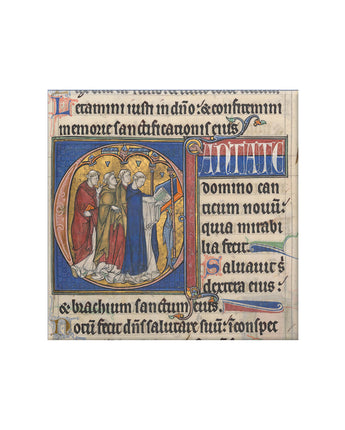 Letamini iusti in dño: & confitemini
memorie sanctificationis eius
CANTATE
domino can
ticum nouū:
quia mirabi
lia fecit.
Saluauit s
dextera eius:
& brachium sanctum eius.
Notū fecit dñs salutare suū: ī conspet